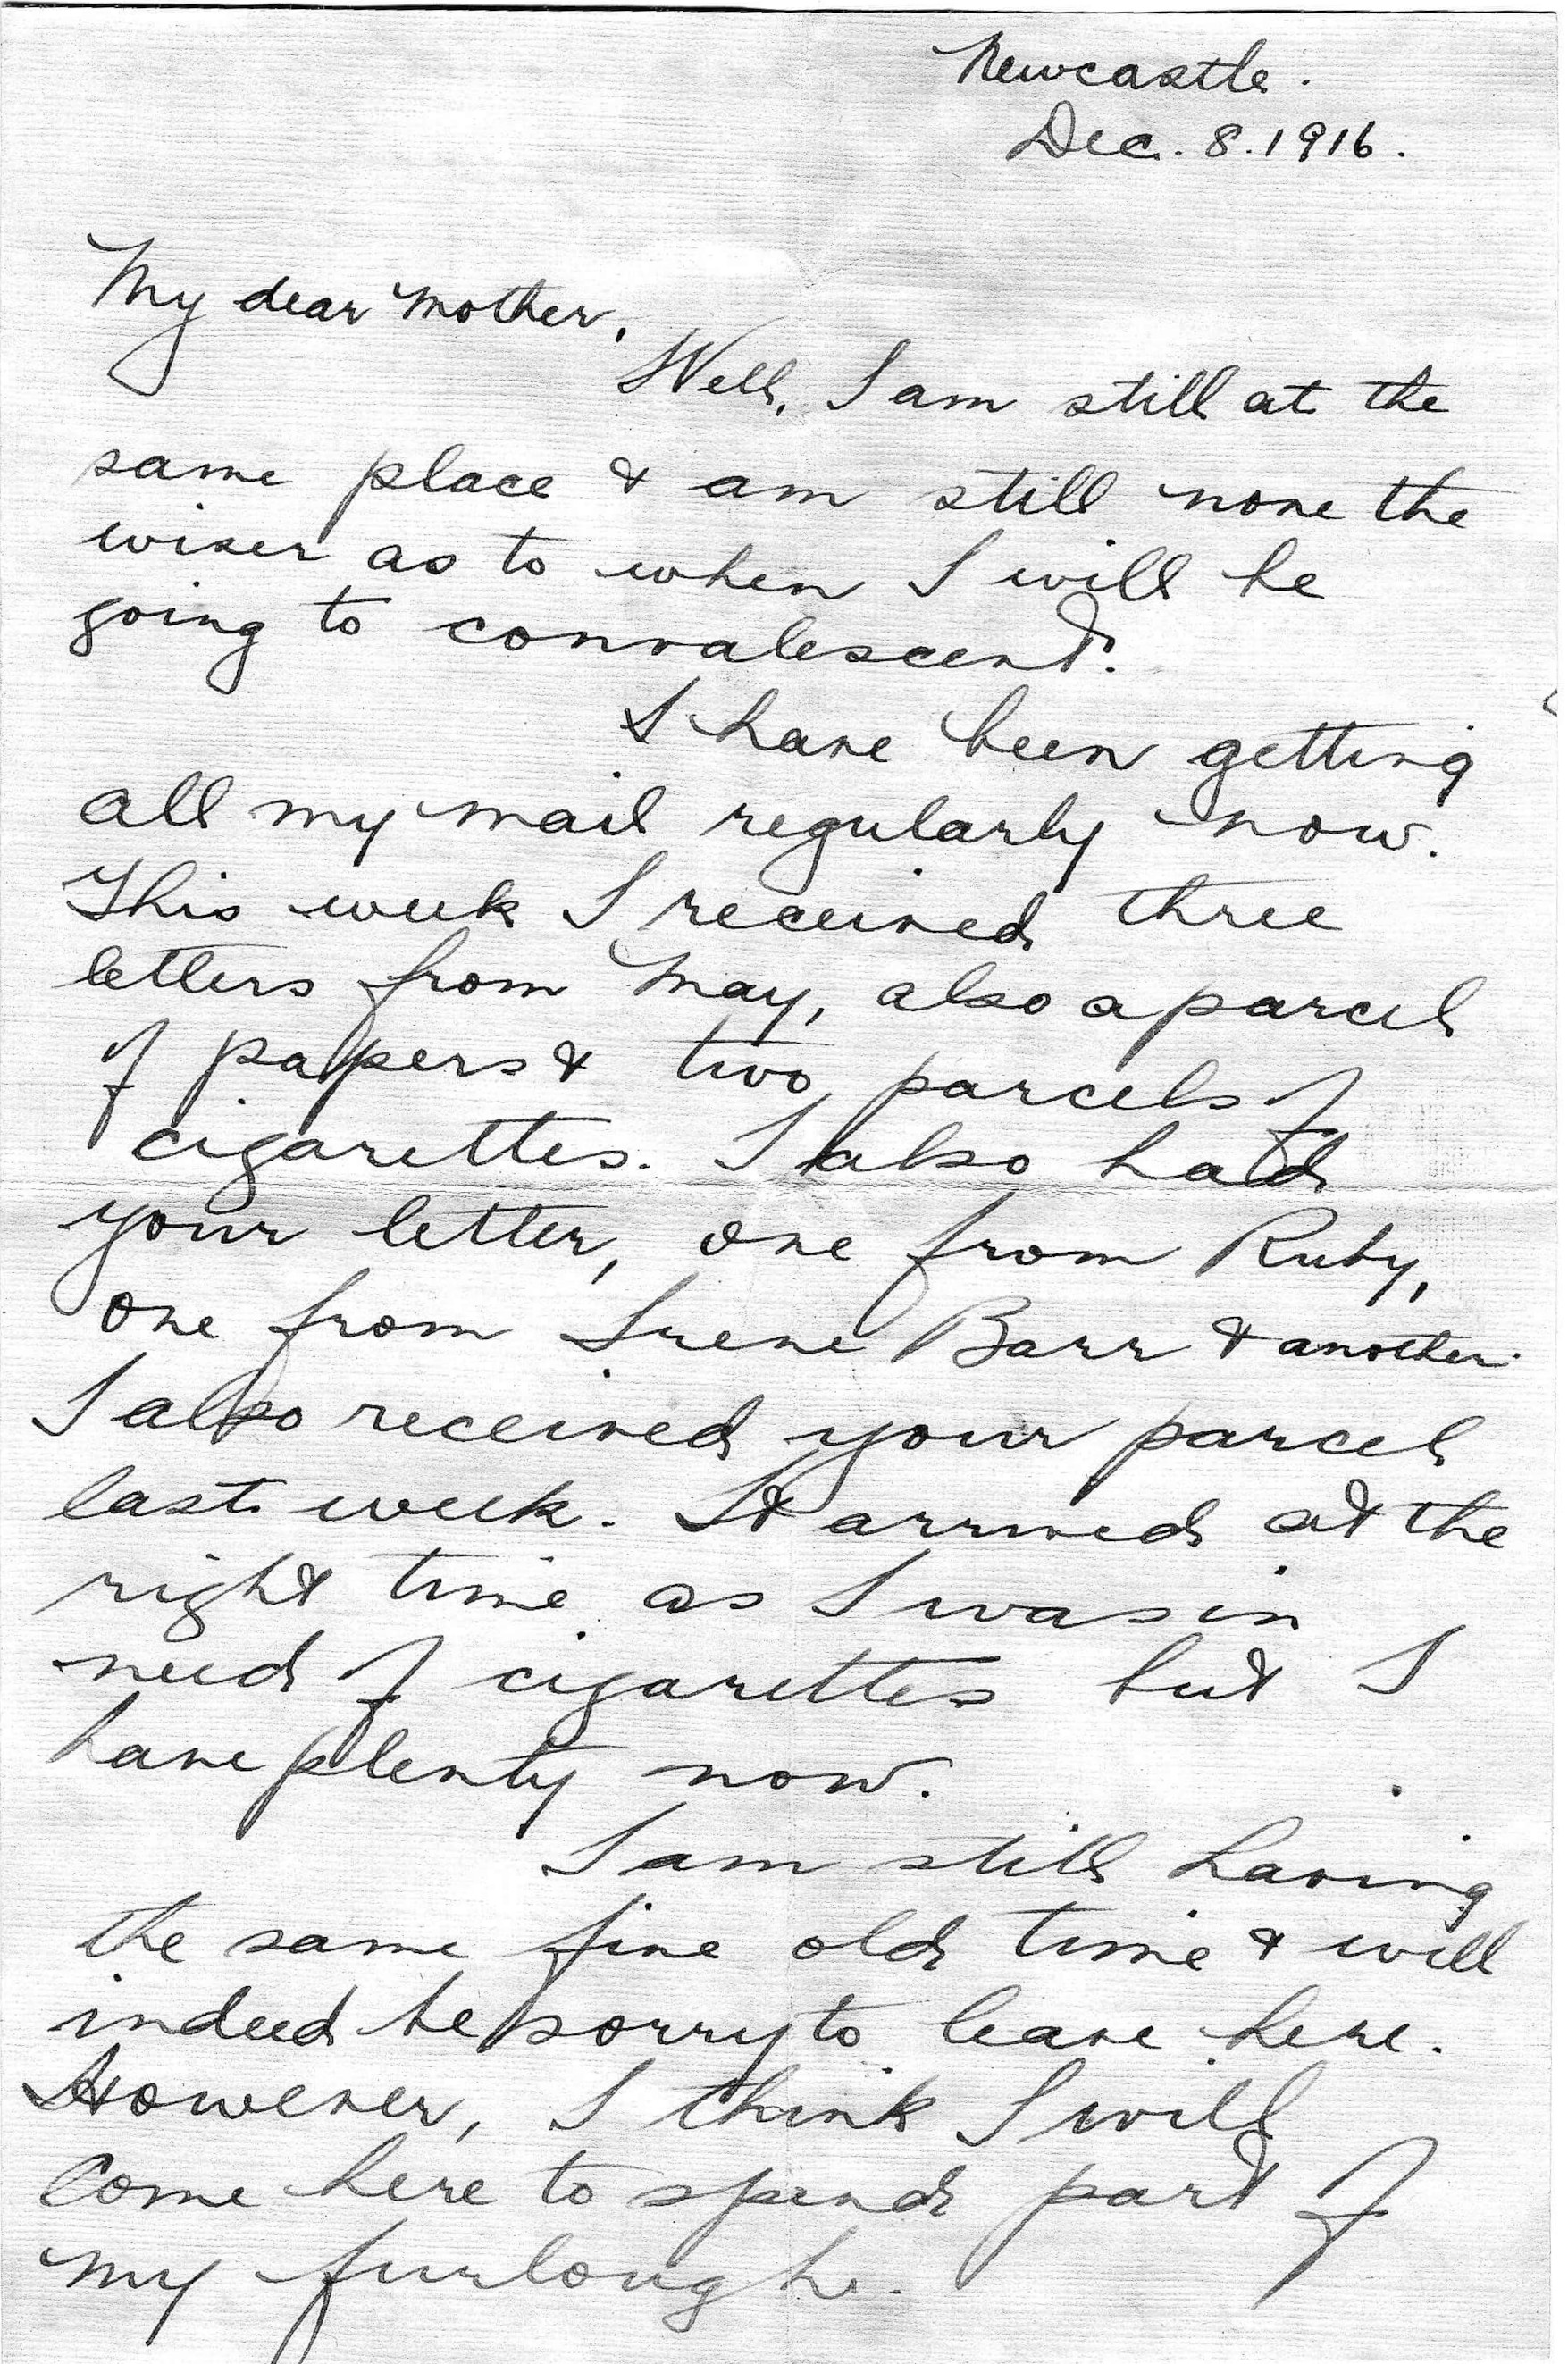 Newcastle.
Dec. 8. 1916.
My dear Mother,
Well, I am still at the
same place & am still none the
wiser as to when I will be
going to convalescent.
I have been getting
all my mail regularly now.
This week I received three
letters from May, also a parcel
of papers & two parcels of
cigarettes. I also had
your letter, one from Ruby,
one from Irene Barr & another.
I also received your parcel
last week. It arrived at the
right time as I was in
need of cigarettes but I
have plenty now.
I am still having
the same fine old time & will
indeed be sorry to leave here.
However, I think I will
come here to spend part of
my furlough.